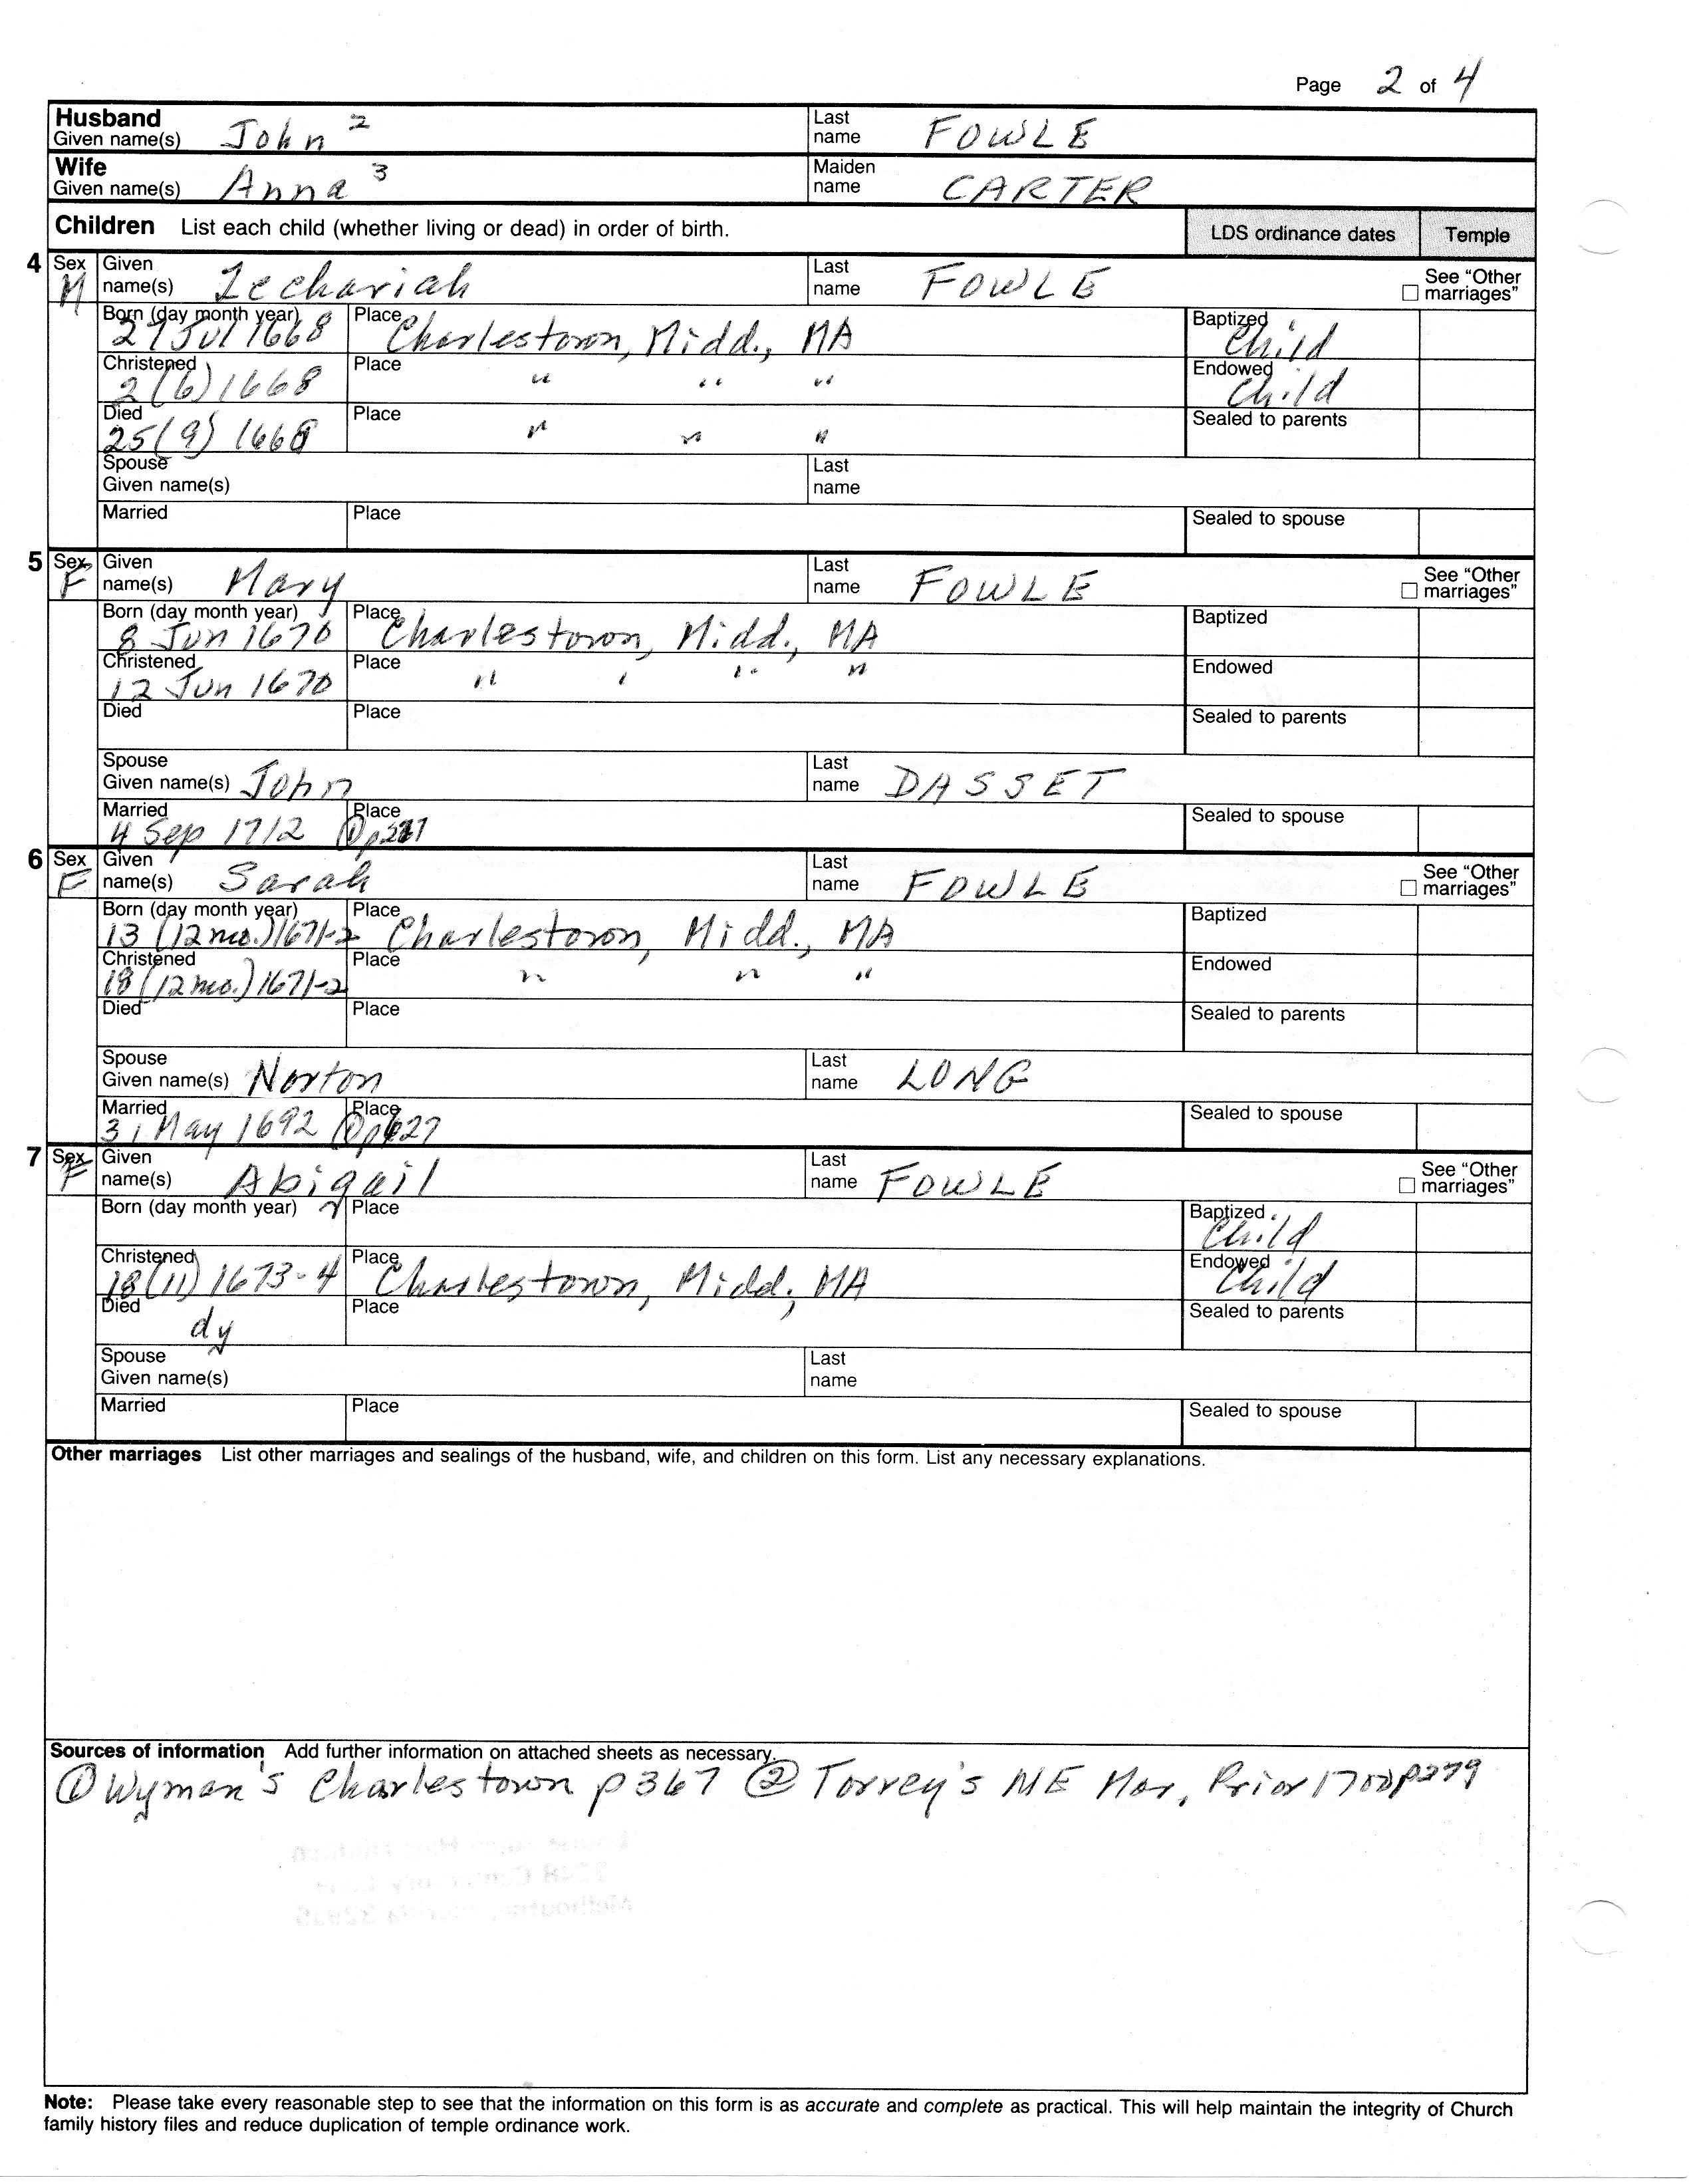 Page 2 of 4
Husband Given name(s) John 2 Last name FOWLE
Wife Given name(s) Anna 3 Maiden name CARTER
Children List each child (whether living or dead) in order of birth. LDS ordinance dates Temple
4 Sex M Given name(s) Zechariah Last name FOWLE See "Other marriages"
Born (day month year) 27 Jul 1668 Place Charlestown, Midd., MA Baptized Child
Christened 2 (6) 1668 Place " " " Endowed Child
Died 25 (9) 1668 Place " " " Sealed to parents
Spouse Given name(s) Last name
Married Place Sealed to spouse
5 Sex F Given name(s) Mary Last name FOWLE See "Other marriages"
Born (day month year) 8 Jun 1670 Place Charlestown, Midd., MA Baptized
Christened 12 Jun 1670 Place " " " Endowed
Died Place Sealed to parents
Spouse Given name(s) John Last name DASSET
Married 4 Sep 1712 Place ① Sealed to spouse
6 Sex F Given name(s) Sarah Last name FOWLE See "Other marriages"
Born (day month year) 13 (12 mo.) 1671-2 Place Charlestown, Midd., MA Baptized
Christened 18 (12 mo.) 1671-2 Place " " " Endowed
Died Place Sealed to parents
Spouse Given name(s) Norton Last name LONG
Married 31 May 1692 Place ① p627 Sealed to spouse
7 Sex F Given name(s) Abigail Last name FOWLE See "Other marriages"
Born (day month year) Place Baptized Child
Christened 18 (11) 1673-4 Place Charlestown, Midd., MA Endowed Child
Died dy Place Sealed to parents
Spouse Given name(s) Last name
Married Place Sealed to spouse
Other marriages List other marriages and sealings of the husband, wife, and children on this form. List any necessary explanations.
Sources of information Add further information on attached sheets as necessary.
① Wyman's Charlestown p 367 ② Torrey's NE Mar. Prior 1700 p279
Note: Please take every reasonable step to see that the information on this form is as accurate and complete as practical. This will help maintain the integrity of Church
family history files and reduce duplication of temple ordinance work.